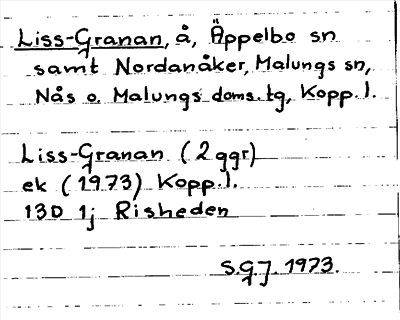 Liss-Granan, å, Äppelbo sn
samt Nordanåker, Malungs sn,
Nås o. Malungs doms. tg, Kopp. l.
Liss-Granan (2 ggr)
ek (1973) Kopp. l.
13D 1j Risheden
S.G.J. 1973.